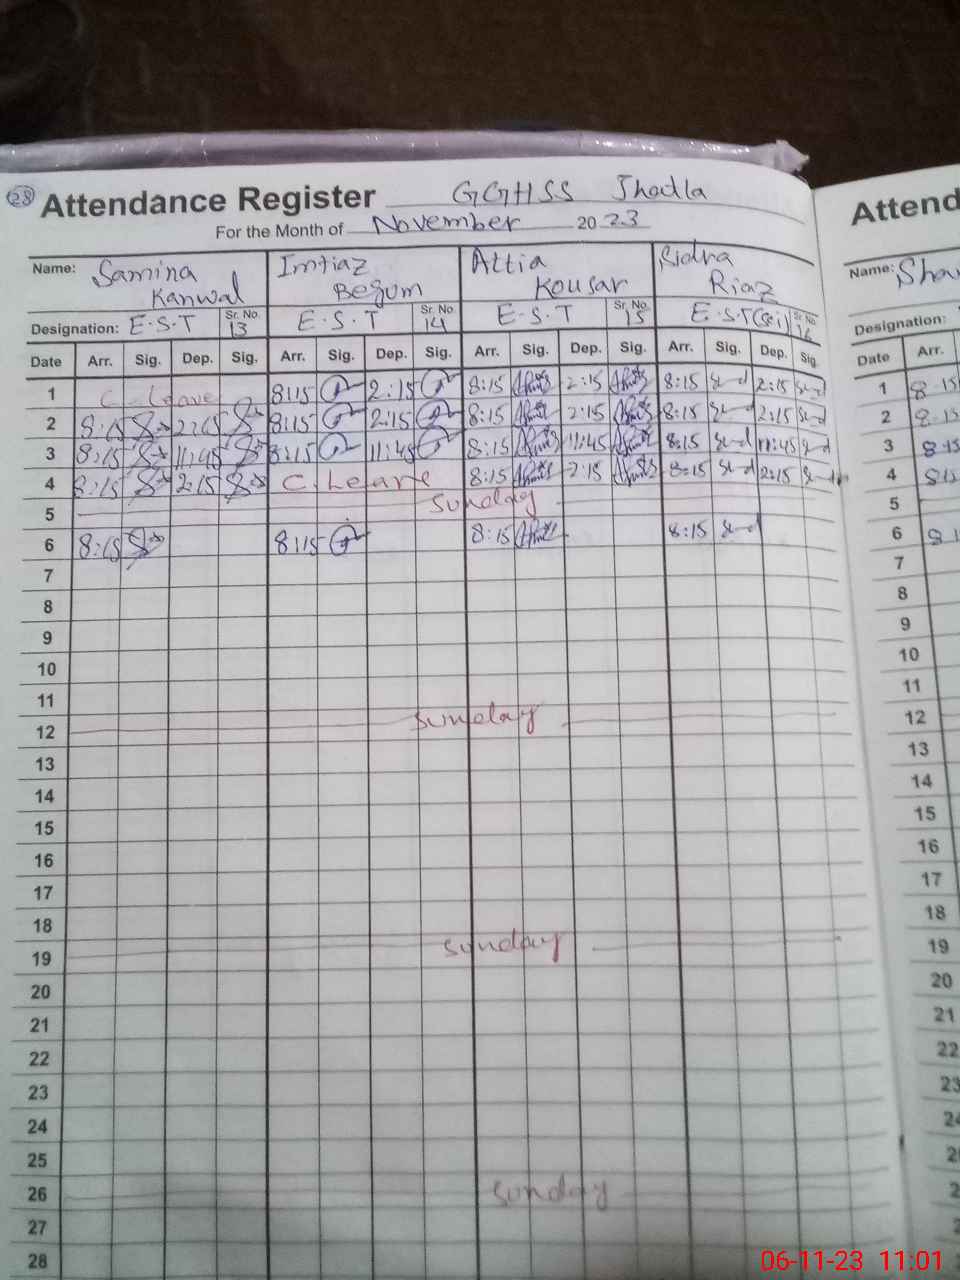 28 Attendance Register GGHSS Jhadla
For the Month of November 2023
Name: Samina Kanwal Imtiaz Begum Attia Kousar Ridra Riaz
Designation: E.S.T Sr. No. 13 E.S.T Sr. No. 14 E.S.T Sr. No. 15 E.S.T(Sci) Sr. No. 16
Date Arr. Sig. Dep. Sig. Arr. Sig. Dep. Sig. Arr. Sig. Dep. Sig. Arr. Sig. Dep. Sig.
1 C. Leave 8:15 2:15 8:15 2:15 8:15 2:15
2 8:15 2:15 8:15 2:15 8:15 2:15 8:15 2:15
3 8:15 11:45 8:15 11:45 8:15 11:45 8:15 11:45
4 8:15 2:15 C. Leave 8:15 2:15 8:15 2:15
5 Sunday
6 8:15 8:15 8:15 8:15
7
8
9
10
11
12 Sunday
13
14
15
16
17
18
19 Sunday
20
21
22
23
24
25
26 Sunday
27
28
Attend
Name: Sha
Designation:
Date Arr.
1 8-15
2 8-15
3 8-15
4 8-15
5
6
7
8
9
10
11
12
13
14
15
16
17
18
19
20
21
22
06-11-23 11:01